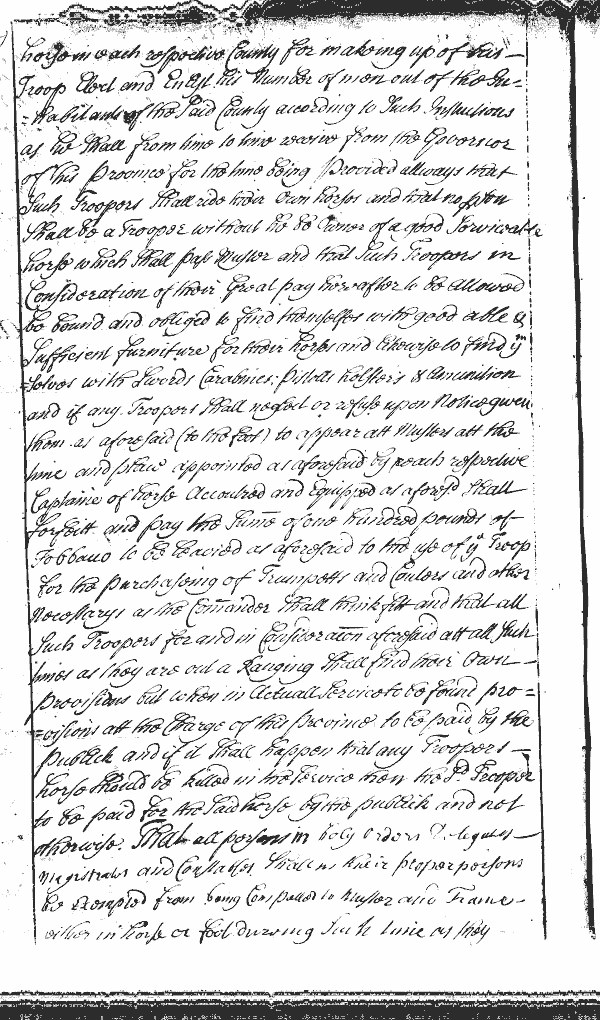 horse in each respective County for makeing up of his
Troop Elect and Enlist his Number of men out of the In=
=habitants of the said County according to Such Instructions
as he Shall from time to time receive from the Governor
of this Province for the time being Provided allways that
Such Troopers Shall ride their Own horses and that no pson
Shall be a Trooper without he be Owner of a good Serviceable
horse which Shall pass Muster and that Such Troopers in
Consideration of their Great pay hereafter to be allowed
be bound and obliged to find themselves with good able &
Sufficient furniture for their horses and likewise to find ym
=selves with Swords Carabines, Pistolls holsters & Amunition
and if any Troopers Shall neglect or refuse upon Notice given
them as aforesaid (to the foot) to appear att Musters att the
time and place appointed as aforesaid by each respective
Captaine of horse Accoutred and Equipped as aforesd Shall
forfeitt and pay the Sume of one hundred pounds of
Tobbacco to be leavied as aforesaid to the use of ye Troop
for the purchaseing of Trumpetts and Coulers and other
Necessarys as the Comander Shall think fitt and that all
Such Troopers for and in Consideracon aforesaid att all Such
times as they are out a Ranging Shall find their Own
provisions but when in Actuall Service to be found pro=
=visions att the Charge of this Province to be paid by the
publick and if it Shall happen that any Troopers
horse Should be killed in the Service then the sd Trooper
to be paid for the said horse by the publick and not
otherwise. That all persons in holy orders Delegates
Magistrates and Constables Shall in their proper persons
be exempted from being Compelled to Muster and Traine
either in horse or foot dureing Such time as they